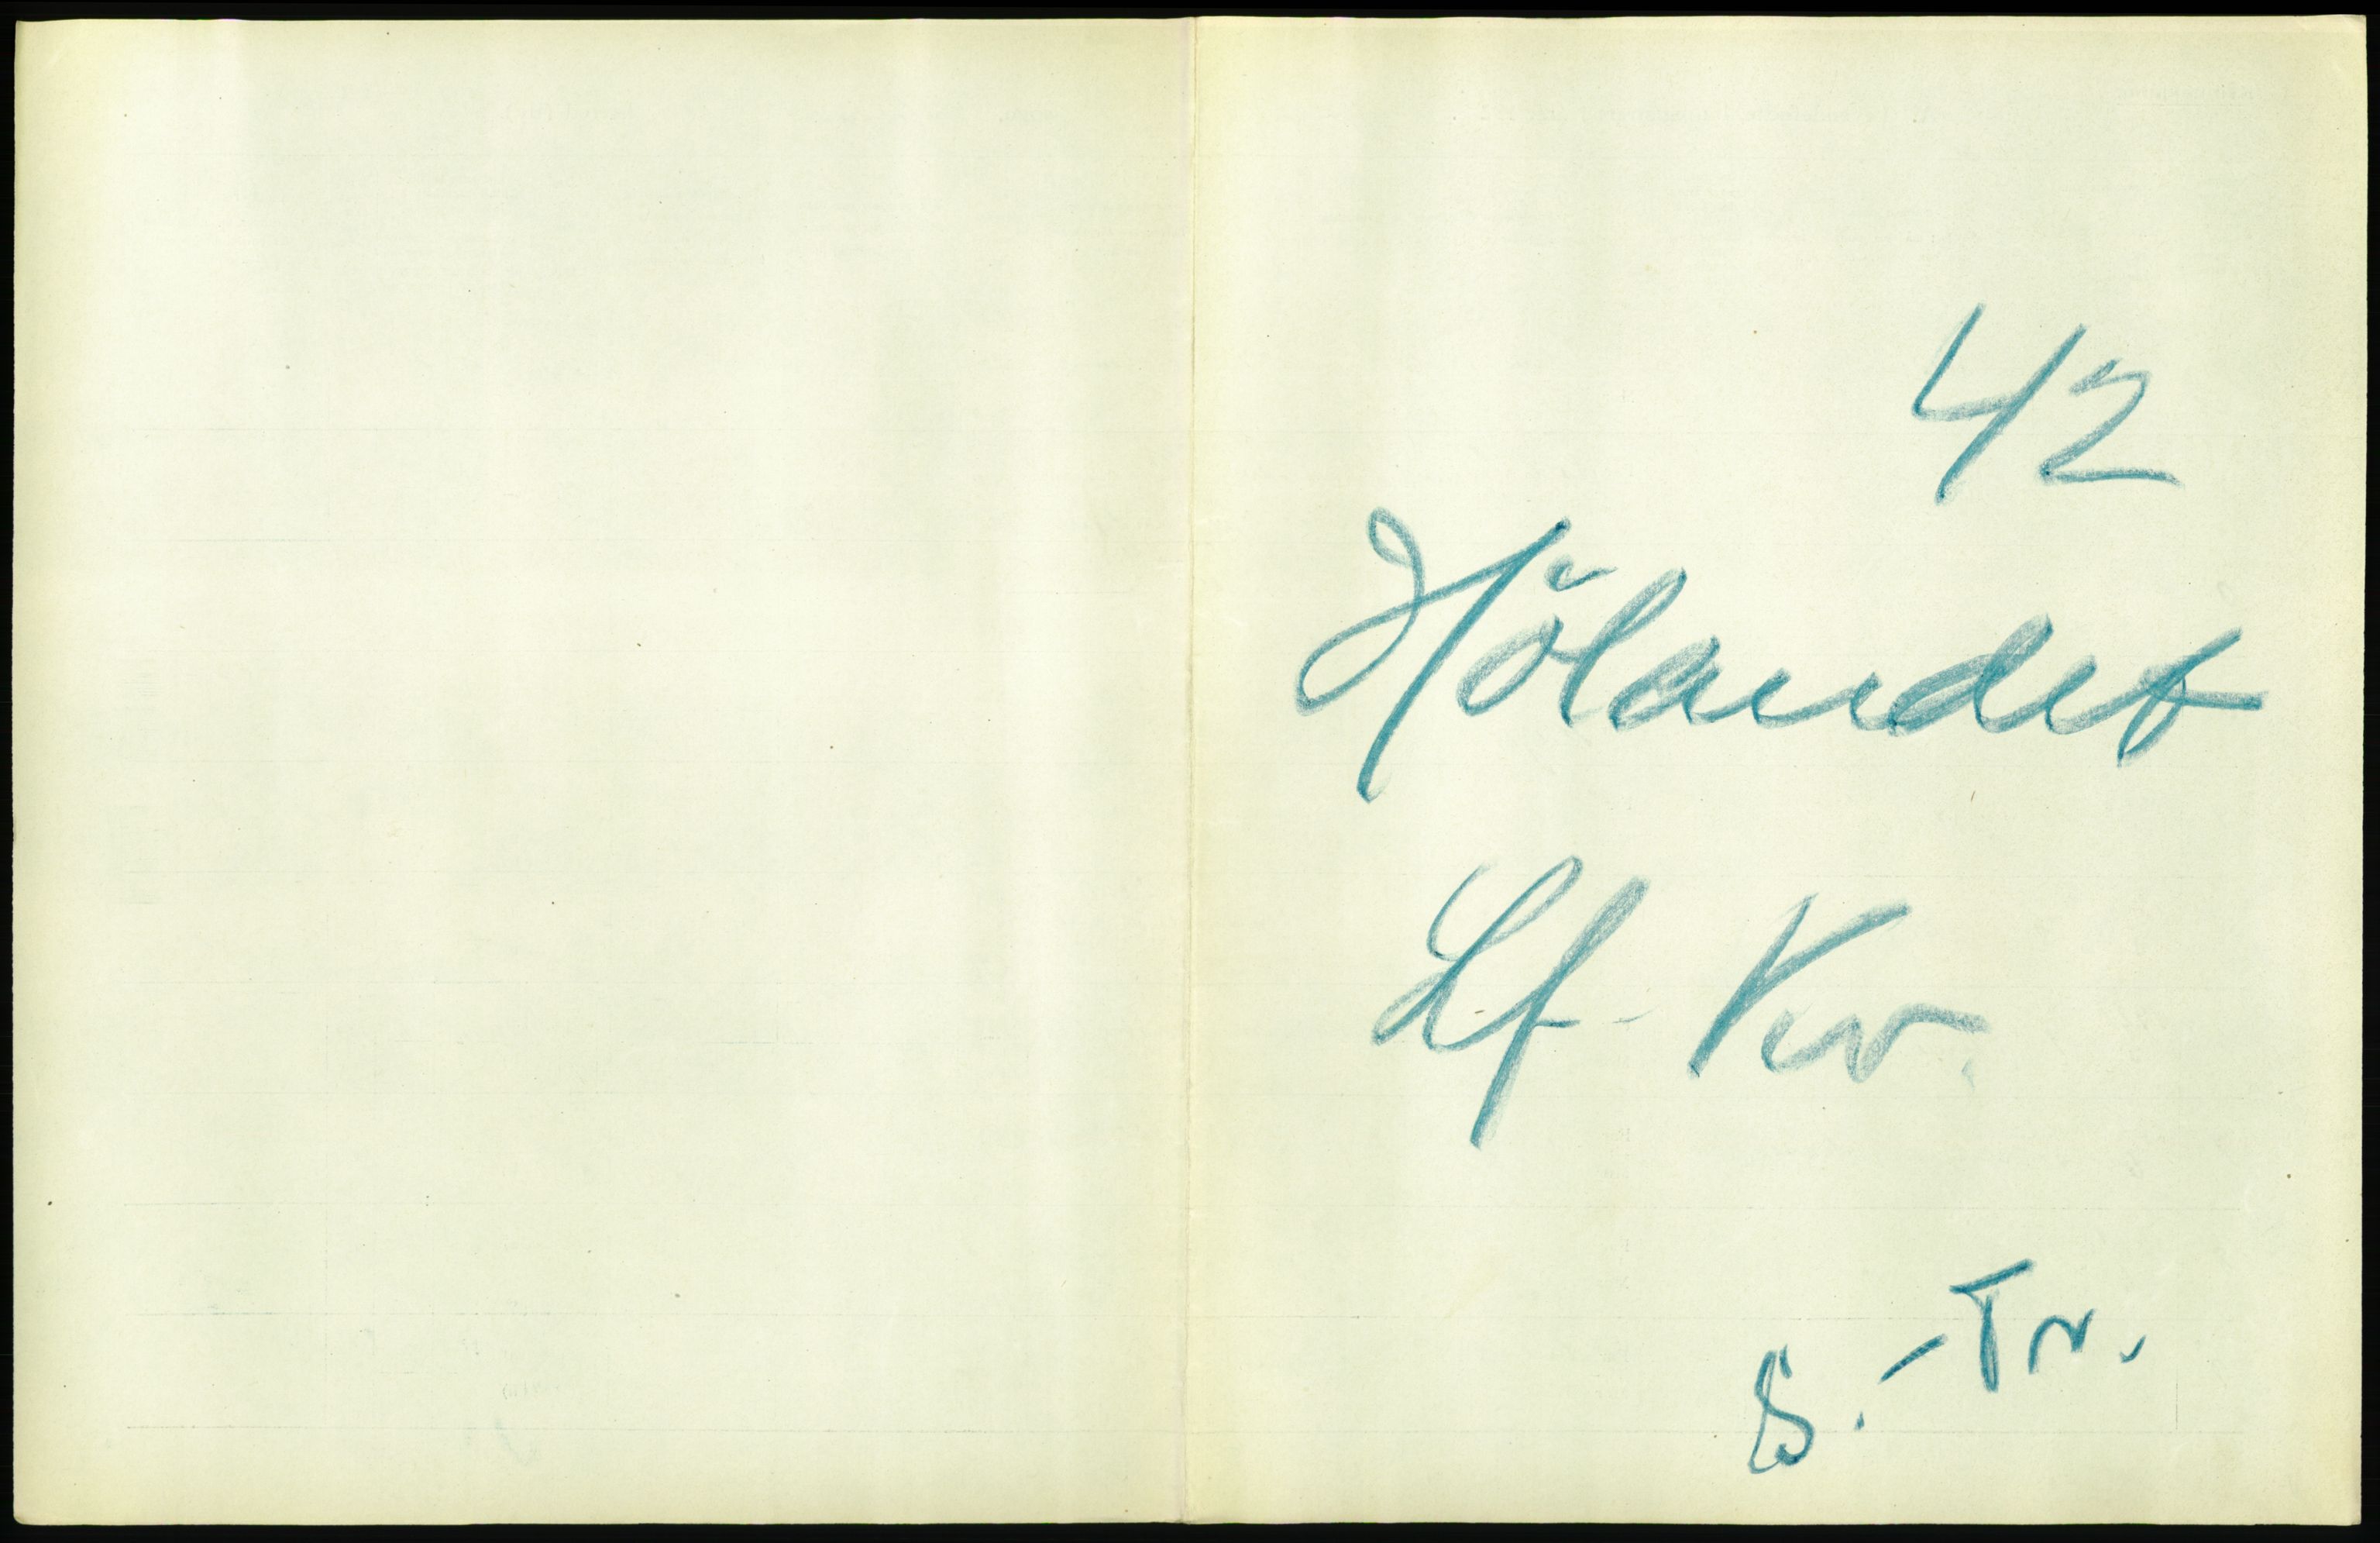 42
Hölandet
Lf - Kv.
S. - Tr.